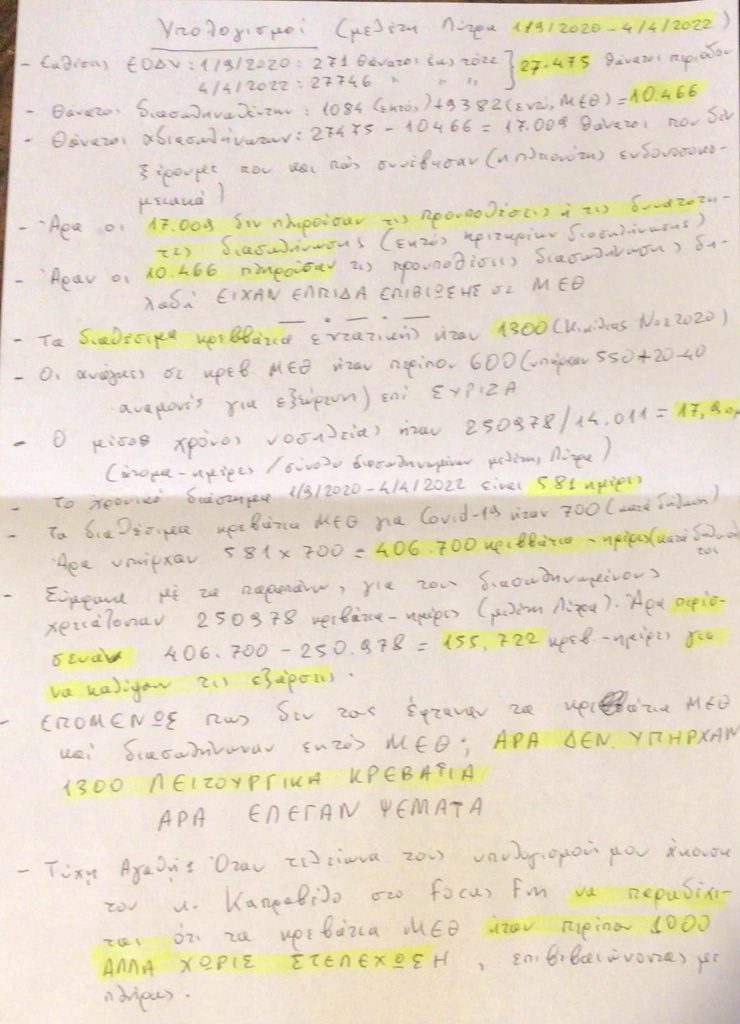 Υπολογισμοί (μελέτη Λύτρα 1/9/2020 - 4/4/2022)
- Εκθέσεις ΕΟΔΥ: 1/9/2020: 271 θάνατοι έως τότε } 27.475 θάνατοι περιόδου
4/4/2022: 27746 " " "
- Θάνατοι διασωληνωθέντων: 1084 (εκτός) + 9382 (εντός ΜΕΘ) = 10.466
- Θάνατοι αδιασωλήνωτων: 27475 - 10466 = 17.009 θάνατοι που δεν
ξέρουμε που και πώς συνέβησαν (κατά πλειονότητα ενδονοσοκο-
μειακά)
- Άρα οι 17.009 δεν πληρούσαν τις προϋποθέσεις ή τις δυνατότη-
τες διασωλήνωσης (εκτός κριτηρίων διασωλήνωσης)
- Άραν οι 10.466 πληρούσαν τις προϋποθέσεις διασωλήνωσης δη-
λαδή ΕΙΧΑΝ ΕΛΠΙΔΑ ΕΠΙΒΙΩΣΗΣ σε ΜΕΘ
- Τα διαθέσιμα κρεββάτια εντατικής ήταν 1300 (Κικίλιας Νοε 2020)
- Οι ανάγκες σε κρεβ. ΜΕΘ ήταν περίπου 600 (υπήρχαν 550 + 20-40
αναμονές για εξεύρεση) επί ΣΥΡΙΖΑ
- Ο μέσος χρόνος νοσηλείας ήταν 250978/14.011 = 17,9
(άτομα - ημέρες / σύνολο διασωληνωμένων μελέτης Λύτρα)
- Το χρονικό διάστημα 1/9/2020 - 4/4/2022 είναι 581 ημέρες
- Τα διαθέσιμα κρεβάτια ΜΕΘ για Covid-19 ήταν 700 (κατά δήλωση)
Άρα υπήρχαν 581 x 700 = 406.700 κρεββάτια - ημέρες (κατά δήλωσή
τους
- Σύμφωνα μέ τα παραπάνω, για τους διασωληνωμένους
χρειάζονταν 250978 κρεβάτια - ημέρες (μελέτη Λύτρα). Άρα περίσ-
σευαν 406.700 - 250.978 = 155.722 κρεβ. - ημέρες για
να καλύψουν τις εξάρσεις.
- ΕΠΟΜΕΝΩΣ πως δεν τους έφταναν τα κρεβάτια ΜΕΘ
καί διασωλήνωναν εκτός ΜΕΘ; ΑΡΑ ΔΕΝ ΥΠΗΡΧΑΝ
1300 ΛΕΙΤΟΥΡΓΙΚΑ ΚΡΕΒΑΤΙΑ
ΑΡΑ ΕΛΕΓΑΝ ΨΕΜΑΤΑ
- Τύχη Αγαθή: Όταν τελείωνα τους υπολογισμούς μου άκουσα
τον κ. Καπραβέλο στο Focus Fm να παραδέχε-
ται ότι τα κρεβάτια ΜΕΘ ήταν περίπου 1000
ΑΛΛΑ ΧΩΡΙΣ ΣΤΕΛΕΧΩΣΗ, επιβεβαιώνοντας με
πλήρως.